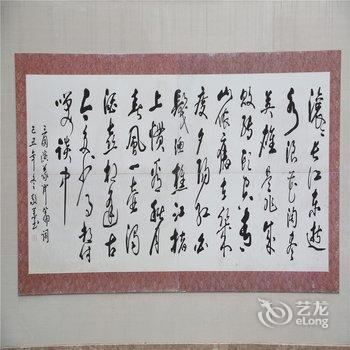 滚滚长江东逝
水浪花淘尽
英雄是非成
败转头空青
山依旧在几
度夕阳红白
发渔樵江渚
上惯看秋月
春风一壶浊
酒喜相逢古
今多少事都付
笑谈中
三国演义开篇词
己丑年冬
艺龙
eLong